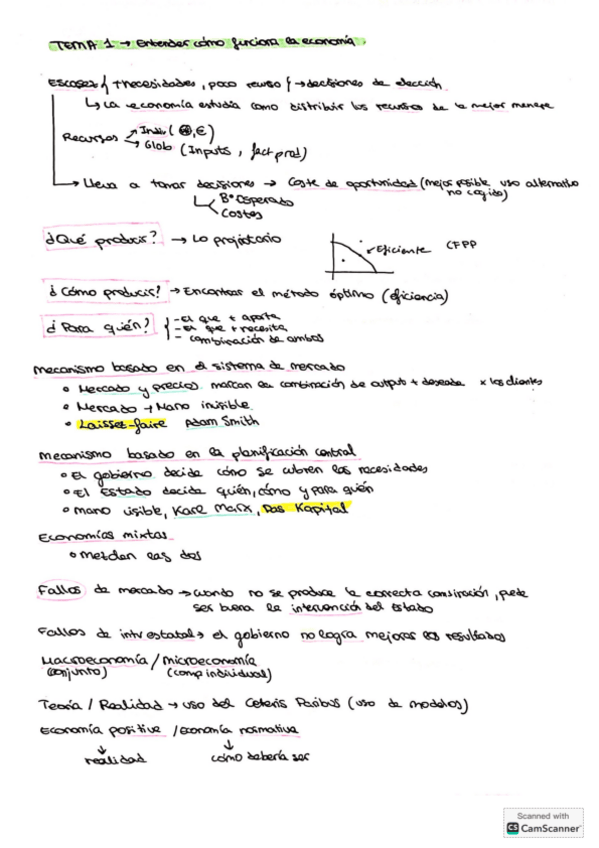 TEMA 1 → Entender cómo funciona la economía.
Escasez { +necesidades, poco recurso } → decisiones de elección
↳ La economía estudia como distribuir los recursos de la mejor manera
Recursos → Indiv ( , €)
→ Glob (Inputs, fact prod)
↳ Lleva a tomar decisiones → Coste de oportunidad (mejor posible uso alternativo
no cogido)
Bº esperado
Costes
¿Qué producir? → Lo prioritario
Eficiente CFPP
¿Cómo producir? → Encontrar el método óptimo (eficiencia)
¿Para quién? { - el que + aporta
- el que + necesita
- combinación de ambos
Mecanismo basado en el sistema de mercado
• Mercado y precios marcan la combinación de output + deseada x los clientes
• Mercado → Mano invisible
• Laissez-faire Adam Smith
Mecanismo basado en la planificación central
• El gobierno decide cómo se cubren las necesidades
• El Estado decide quién, cómo y para quién
• mano visible, Karl Marx, Das Kapital
Economías mixtas
• Mezclan las dos
Fallos de mercado → cuando no se produce la correcta, puede
ser buena la intervención del Estado
Fallos de intv estatal → el gobierno no logra mejorar los resultados
Macroeconomía / microeconomía
(conjunto) (comp individual)
Teoría / Realidad → uso del Ceteris Paribus (uso de modelos)
Economía positiva / Economía normativa
↓ ↓
realidad cómo debería ser
Scanned with
CS CamScanner